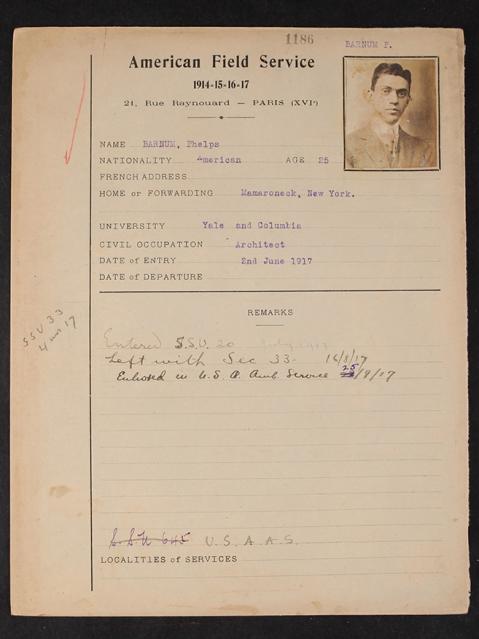 1186
BARNUM P.
American Field Service
1914-15-16-17
21, Rue Raynouard — PARIS (XVIᵉ)
NAME BARNUM, Phelps
NATIONALITY American AGE 25
FRENCH ADDRESS
HOME or FORWARDING Mamaroneck, New York.
UNIVERSITY Yale and Columbia
CIVIL OCCUPATION Architect
DATE of ENTRY 2nd June 1917
DATE of DEPARTURE
REMARKS
SSU 33
4 17
Entered S.S.U. 20 July 1917
Left with Sec 33- 16/8/17
Enlisted in U.S.A. Amb. Service 25/9/17
S.S.U 645 U.S.A.A.S.
LOCALITIES of SERVICES